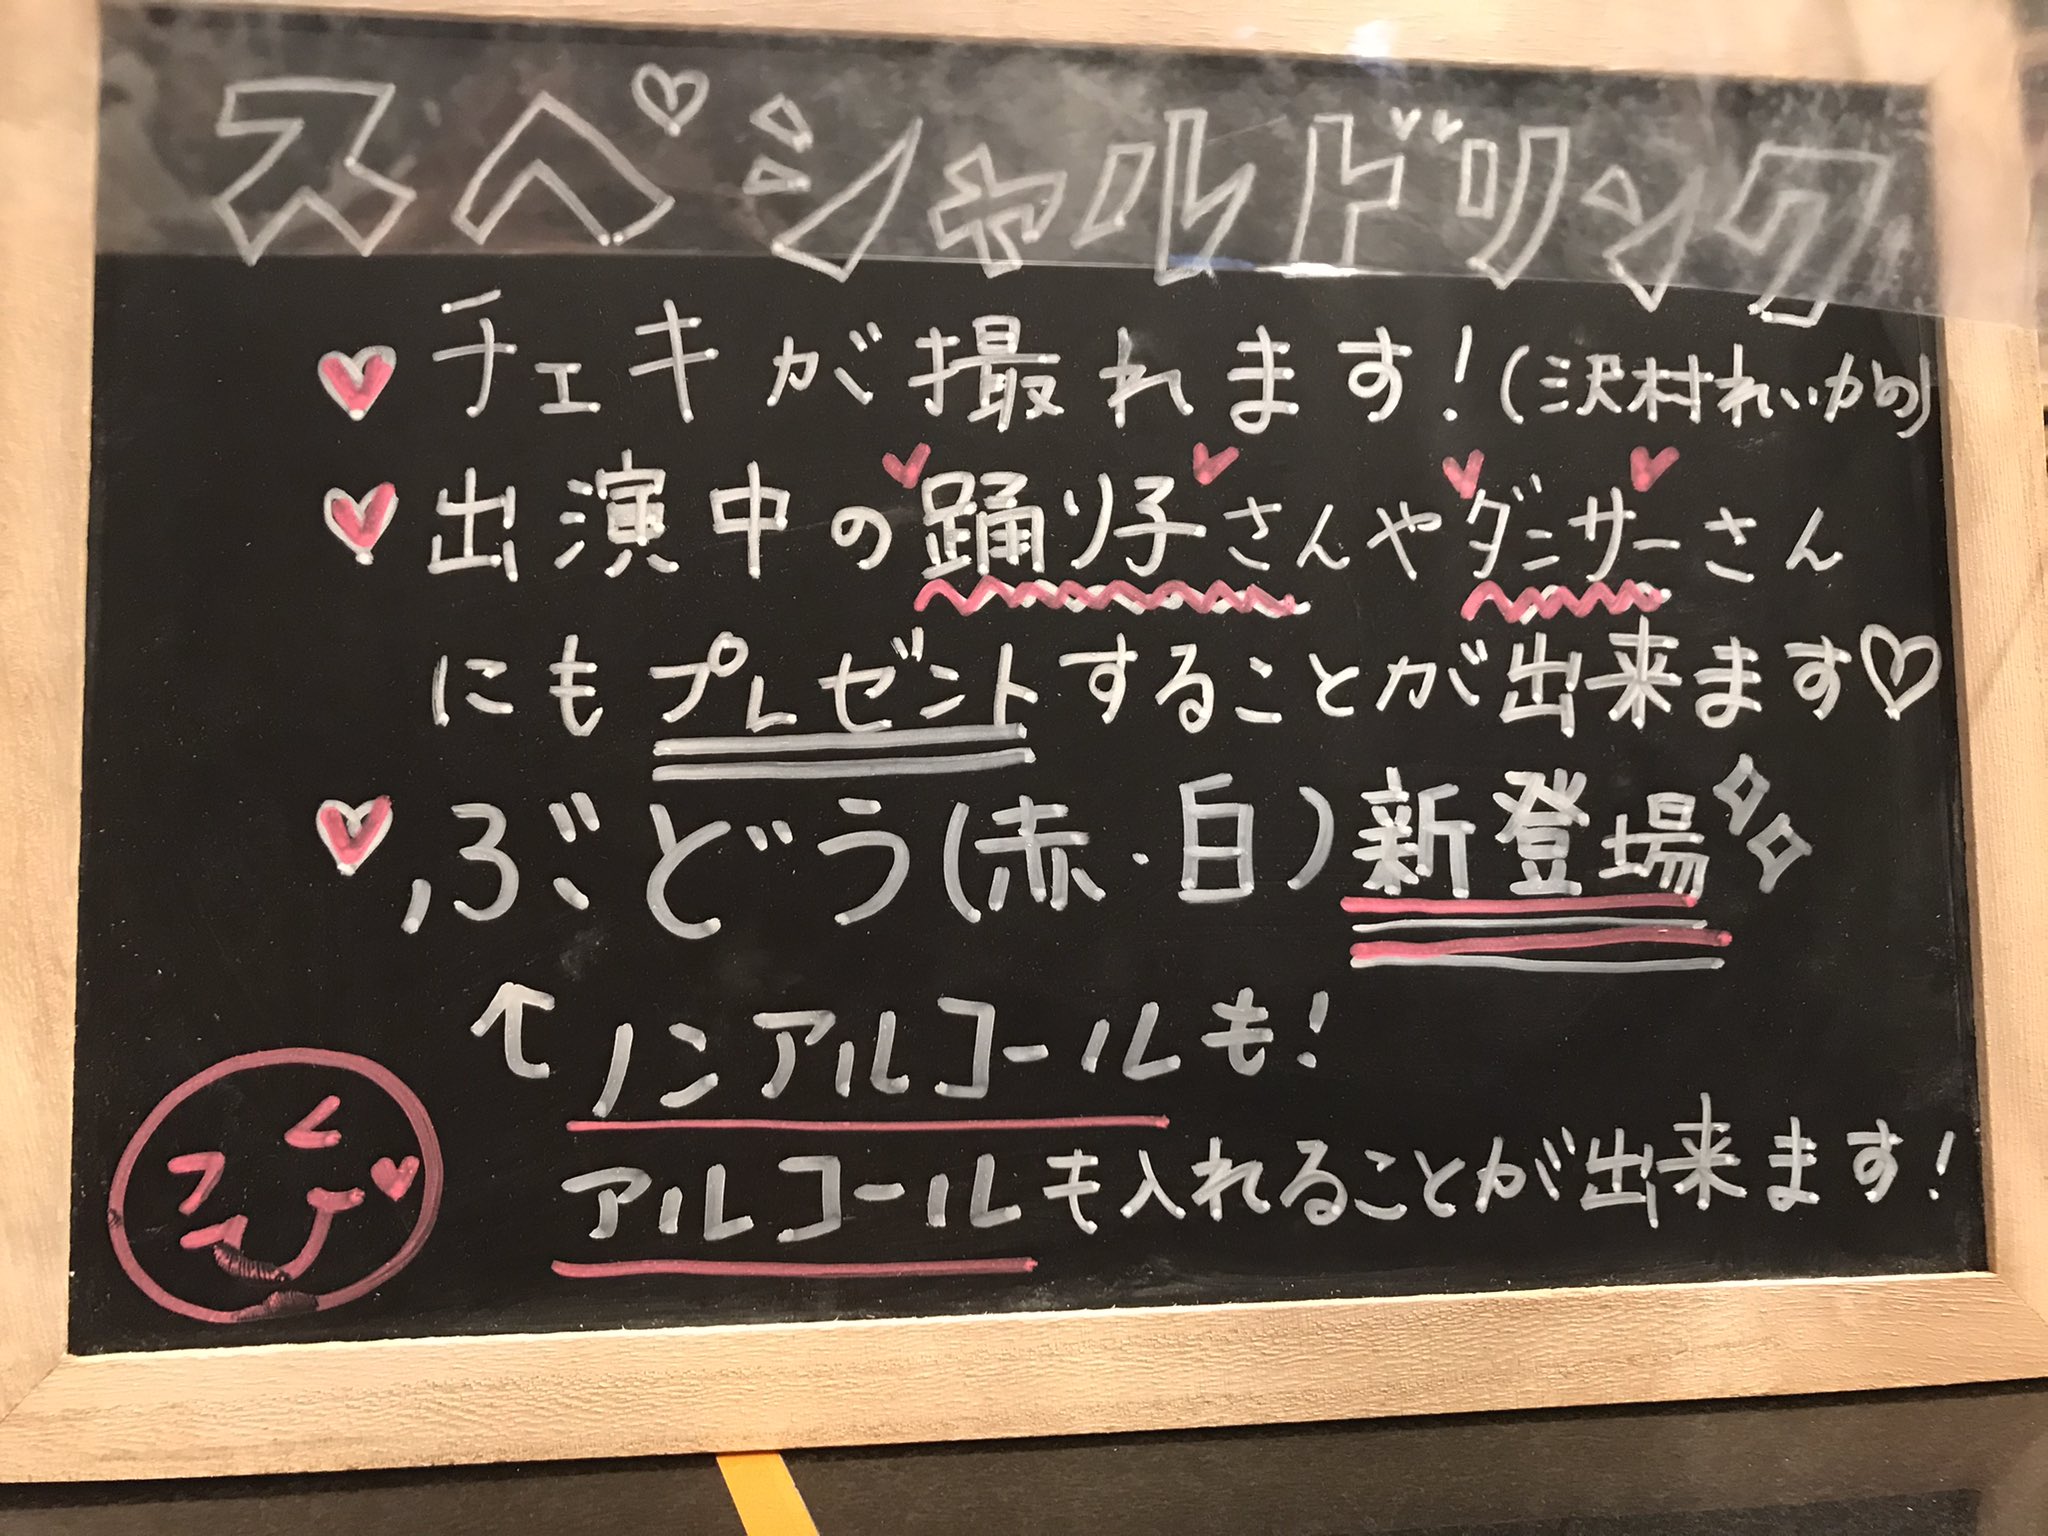 スペシャルドリンク
チェキが撮れます!(沢村れいかの)
出演中の踊り子さんやダンサーさん
にもプレゼントすることが出来ます♡
ぶどう(赤・白)新登場
↑ノンアルコールも!
アルコールも入れることが出来ます!